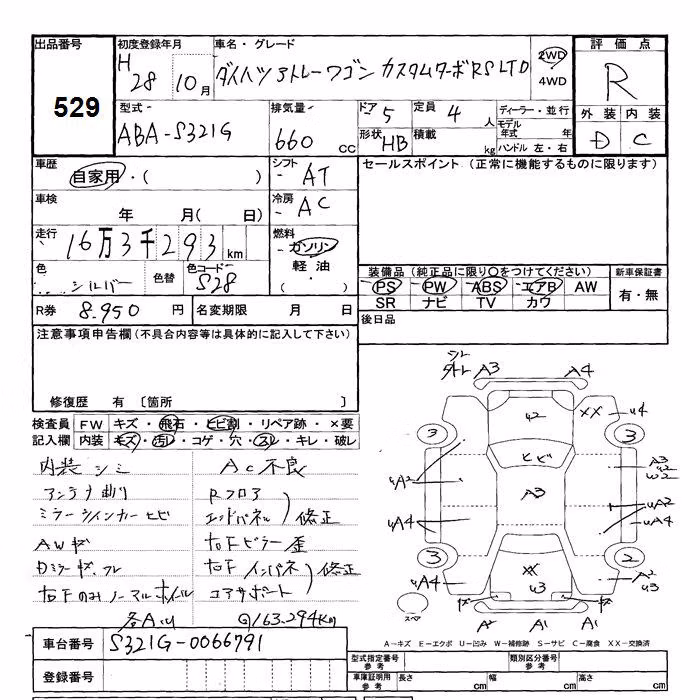 出品番号
529
初度登録年月
H 28 10月
車名・グレード
ダイハツ アトレーワゴン カスタムターボRS LTD
2WD
4WD
評価点
R
外装 内装
D C
型式
ABA-S321G
排気量
660 cc
ドア 5
形状 HB
定員 4 人
積載 kg
ディーラー・並行
モデル年式 年
ハンドル 左・右
車歴
自家用・( )
シフト
AT
セールスポイント (正常に機能するものに限ります)
車検
年 月( 日)
冷房
AC
走行
16万3千293km
燃料
ガソリン
軽油
・( )
色
シルバー
色替
色コード
S28
装備品 (純正品に限り〇をつけてください)
PS PW ABS エアB AW
SR ナビ TV カワ
新車保証書
有・無
R券 8,950 円
名変期限 月 日
後日品
注意事項申告欄 (不具合内容等は具体的に記入して下さい)
修復歴 有 〔箇所 〕
検査員記入欄
FW キズ・飛石・ヒビ割・リペア跡・×要
内装 キズ・汚レ・コゲ・穴・スレ・キレ・破レ
内装シミ AC不良
アンテナ曲り Rフロア
ミラーウインカーヒビ エンドパネル 修正
AWキズ 右Fピラー歪
Dミラーキズ、スレ 右Fインパネ 修正
右Fのみノーマルホイル コアサポート
各AU
◎163.294km
シルタトレ A3 A4
XX U4
U2
3 3
ヒビ
UA2
A3
A3 U2 W2
UA4
UA2
UA4
3 2
XX
U3
UA4
A2 U3
スペア
A2 A1 A1
A-キズ E-エクボ U-凹み W-補修跡 S-サビ C-腐食 XX-交換済
車台番号 S321G-0066791
登録番号
型式指定番号 参考
類別区分番号 参考
車庫証明用 参考
長さ cm
幅 cm
高さ cm